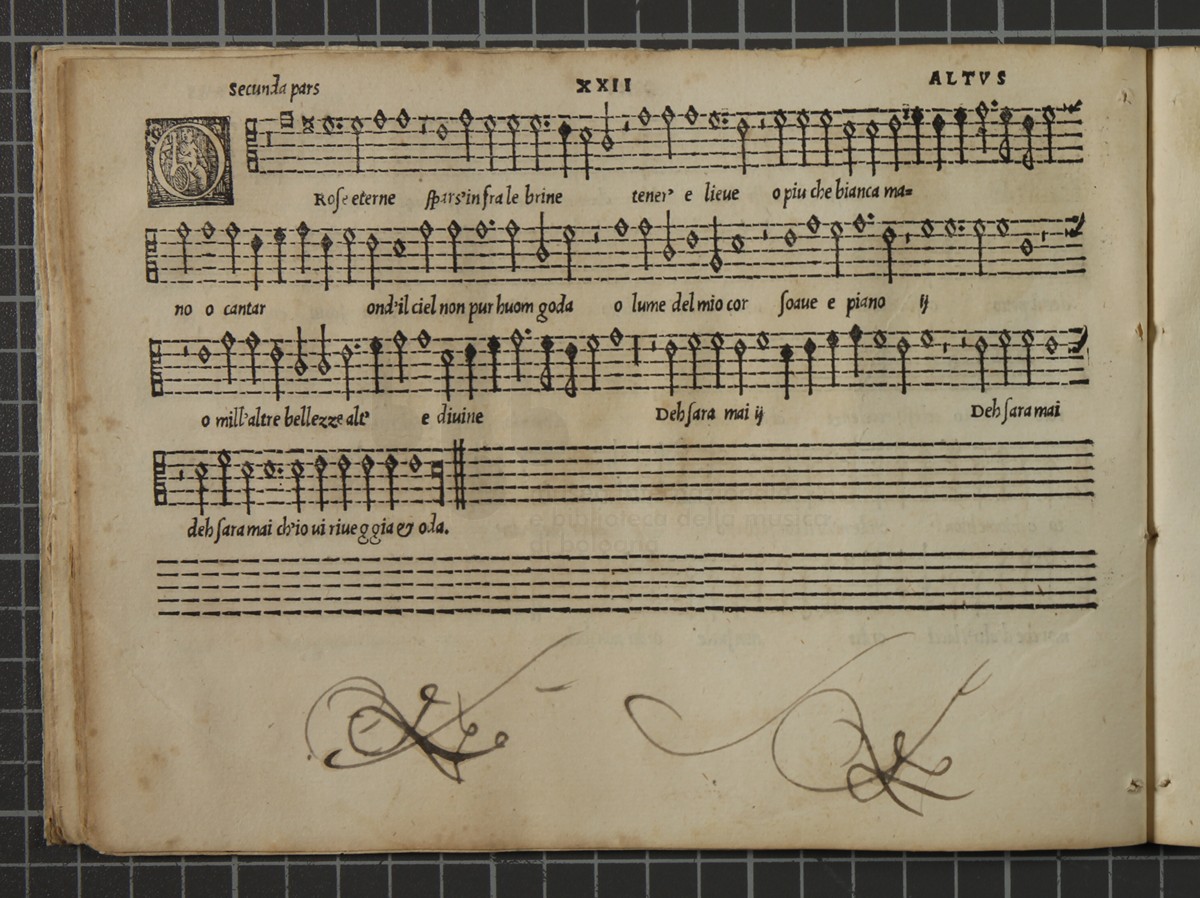 Secunda pars XXII ALTVS
O Rose eterne spars'in fra le brine tener' e lieue o piu che bianca ma=
no o cantar ond'il ciel non pur huom goda o lume del mio cor soaue e piano ij
o mill'altre bellezze alt' e diuine Deh sara mai ij Deh sara mai
deh sara mai ch'io ui riueggia & oda.
e biblioteca della musica
di bologna